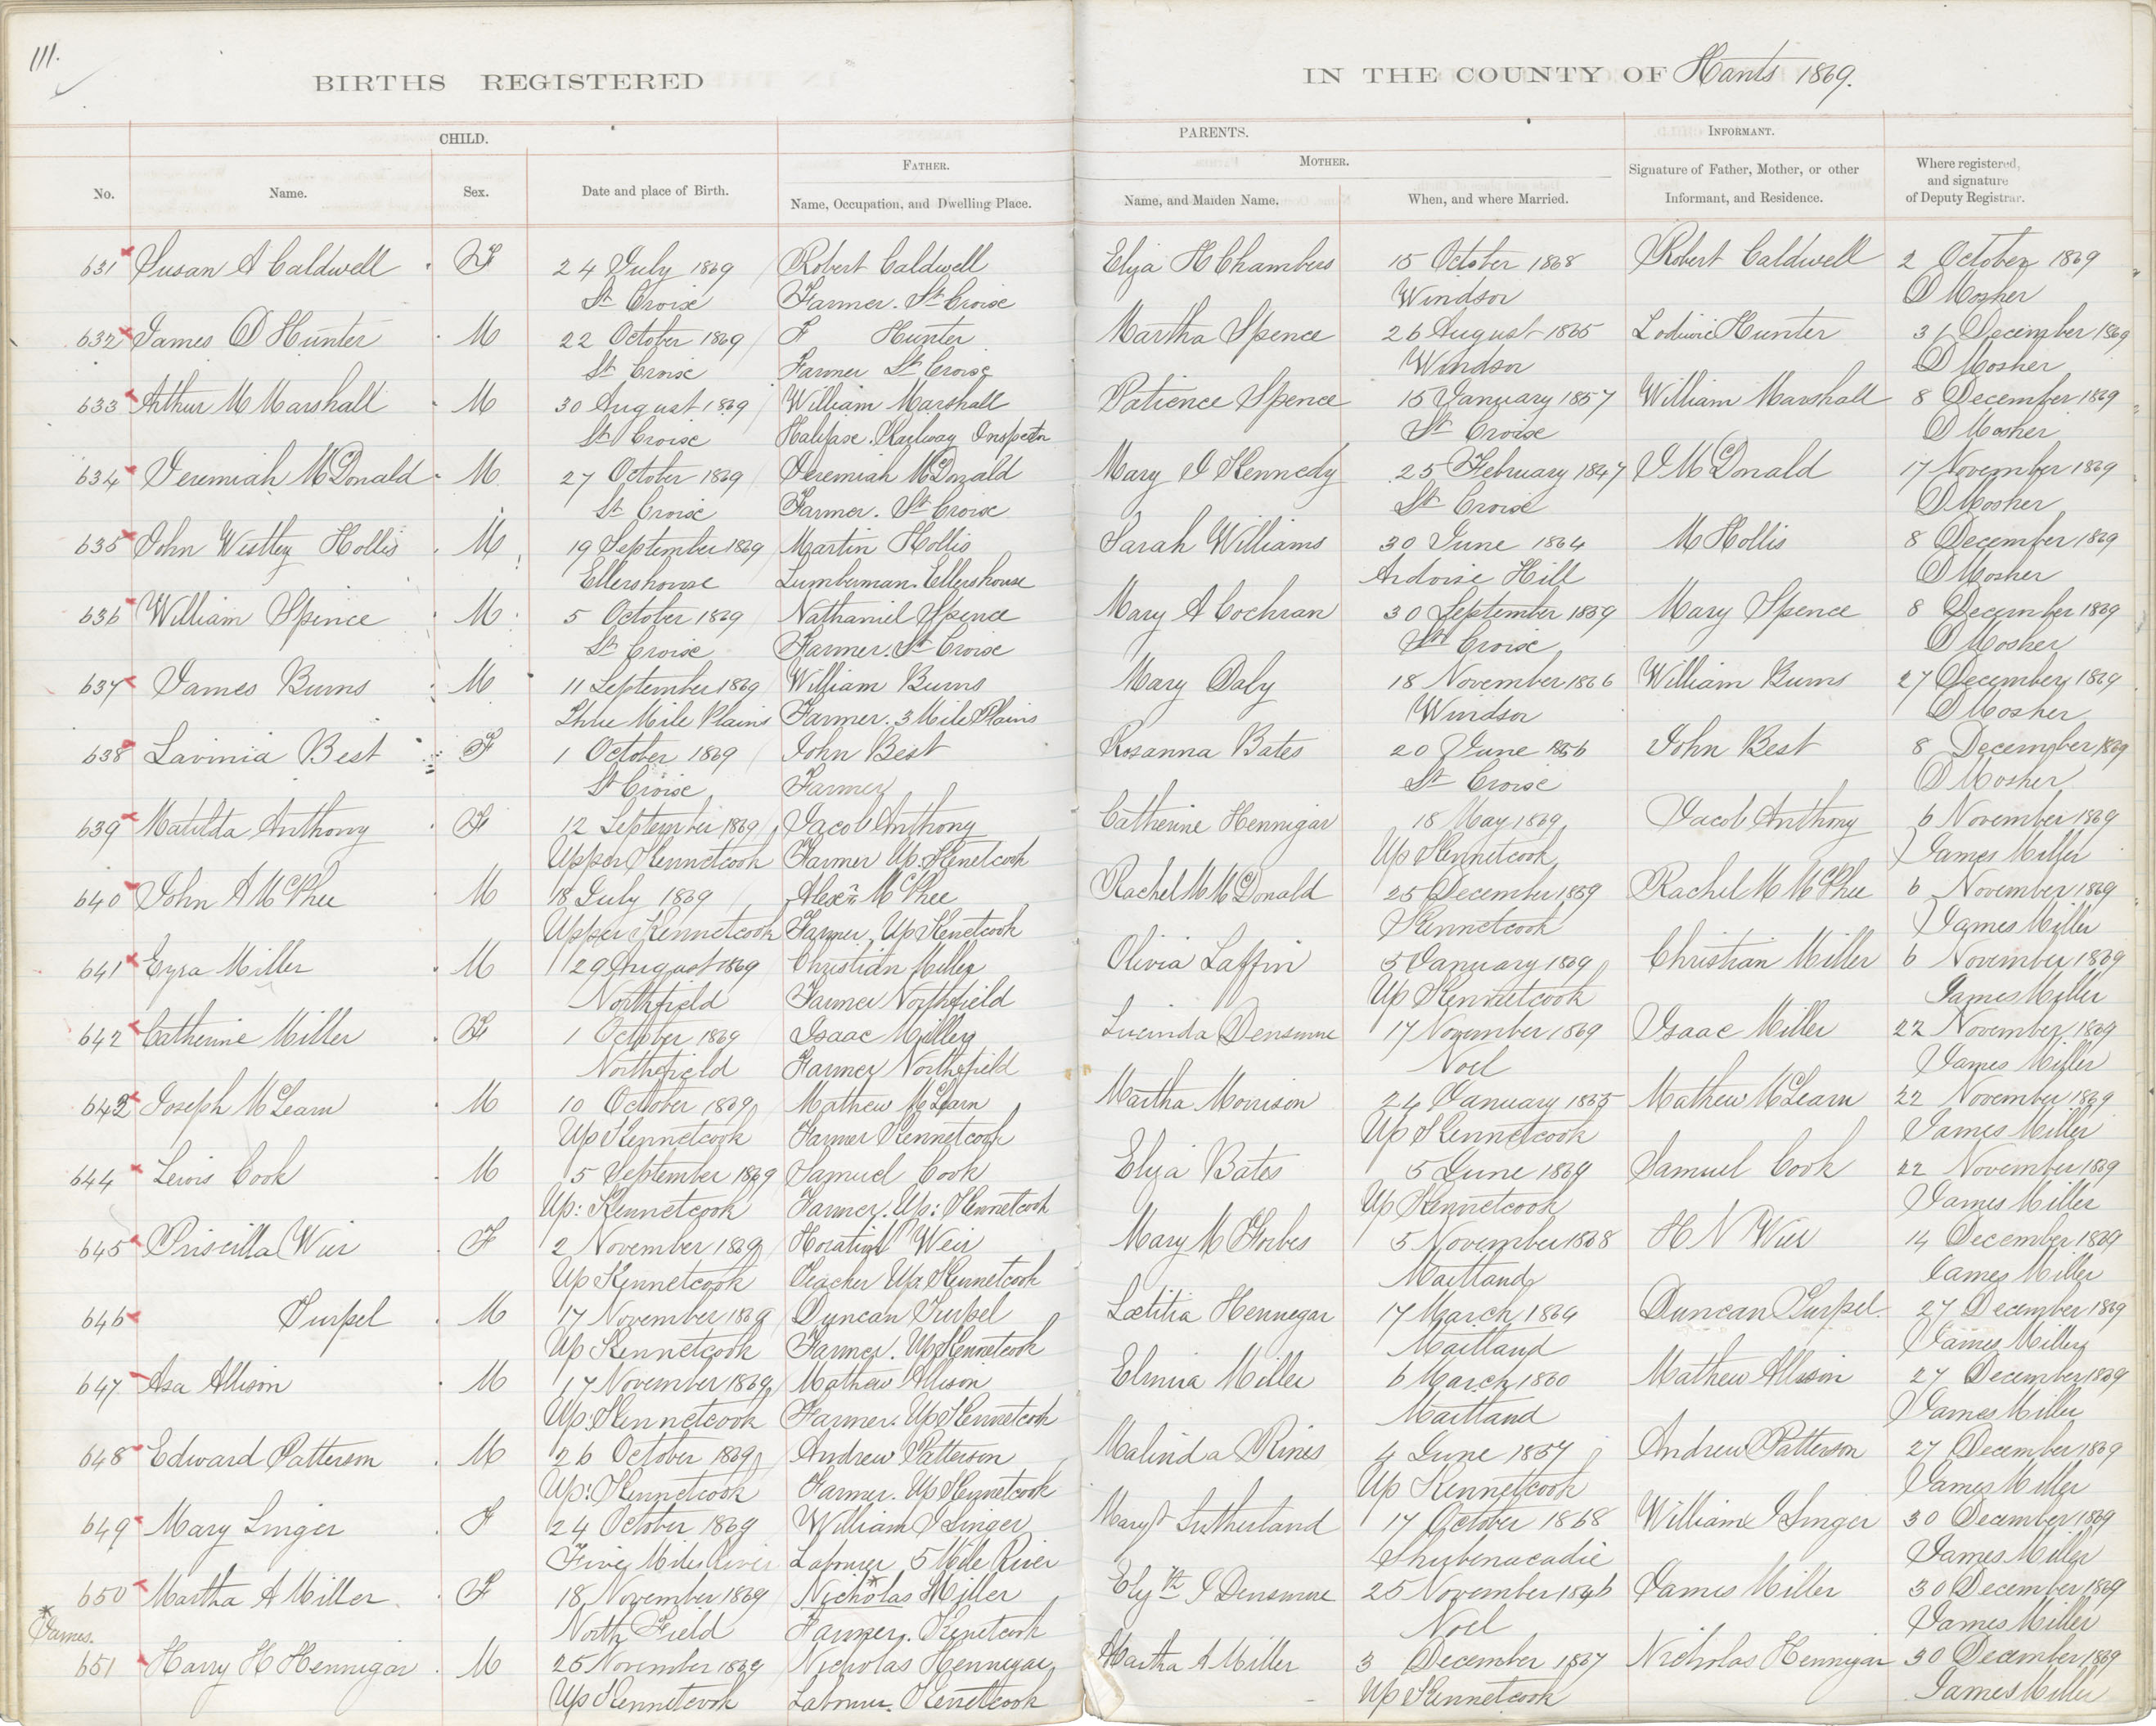 111.
BIRTHS REGISTERED IN THE COUNTY OF Hants 1869.
CHILD. PARENTS. INFORMANT.
No. Name. Sex. Date and place of Birth. FATHER. Name, Occupation, and Dwelling Place. MOTHER. Name, and Maiden Name. When, and where Married. Signature of Father, Mother, or other Informant, and Residence. Where registered, and signature of Deputy Registrar.
631 Susan A Caldwell F 24 July 1869 Robert Caldwell Eliza H Chambers 15 October 1868 Robert Caldwell 2 October 1869
St Croix Farmer. St Croix Windsor D Mosher
632 James D Hunter M 22 October 1869 F Hunter Martha Spence 26 August 1865 Hunter 31 December 1869
St Croix Farmer St Croix Windsor D Mosher
633 Arthur M Marshall M 30 August 1869 William Marshall Patience Spence 15 January 1857 William Marshall 8 December 1869
St Croix Halifax. Railway Inspector St Croix D Mosher
634 Jeremiah McDonald M 27 October 1869 Jeremiah McDonald Mary J Kennedy 25 February 1847 J McDonald 17 November 1869
St Croix Farmer. St Croix St Croix D Mosher
635 John Westley Hollis M 19 September 1869 Martin Hollis Sarah Williams 30 June 1864 M Hollis 8 December 1869
Ellershouse Lumberman. Ellershouse Ardoise Hill D Mosher
636 William Spince M 5 October 1869 Nathaniel Spence Mary A Cochran 30 September 1859 Mary Spence 8 December 1869
St Croix Farmer. St Croix St Croix D Mosher
637 James Burns M 11 September 1869 William Burns Mary Daly 18 November 1866 William Burns 27 December 1869
Three Mile Plains Farmer. 3 Mile Plains Windsor D Mosher
638 Lavinia Best F 1 October 1869 John Best Rosanna Bates 20 June 1856 John Best 8 December 1869
St Croix Farmer St Croix D Mosher
639 Matilda Anthony F 12 September 1869 Jacob Anthony Catherine Hennigar 18 May 1869 Jacob Anthony 6 November 1869
Upper Kennetcook Farmer Up. Kenetcook Up Kennetcook James Miller
640 John A McPhee M 18 July 1869 Alexr McPhee Rachel M McDonald 25 December 1859 Rachel M McPhee 6 November 1869
Upper Kennetcook Farmer, Up Kenetcook Kennetcook James Miller
641 Ezra Miller M 29 August 1869 Christian Miller Olivia Laffin 5 January 1869 Christian Miller 6 November 1869
Northfield Farmer Northfield Up Kennetcook James Miller
642 Catherine Miller F 1 October 1869 Isaac Miller Lucinda Densmore 17 November 1869 Isaac Miller 22 November 1869
Northfield Farmer Northfield Noel James Miller
643 Joseph McLearn M 10 October 1869 Mathew McLearn Martha Morrison 24 January 1855 Mathew McLearn 22 November 1869
Up Kennetcook Farmer Kennetcook Up Kennetcook James Miller
644 Lewis Cook M 5 September 1869 Samuel Cook Eliza Bates 5 June 1869 Samuel Cook 22 November 1869
Up: Kennetcook Farmer. Up: Kennetcook Up Kennetcook James Miller
645 Priscilla Weir F 2 November 1869 Horatio N Weir Mary M Forbes 5 November 1868 H N Weir 14 December 1869
Up Kennetcook Teacher Up. Kennetcook Maitland James Miller
646 Turpel M 17 November 1869 Duncan Turpel Lætitia Hennegar 17 March 1864 Duncan Turpel. 27 December 1869
Up Kennetcook Farmer. Up Kennetcook Maitland James Miller
647 Asa Allison M 17 November 1869 Mathew Allison Elmira Miller 6 March 1860 Mathew Allison 27 December 1869
Up: Kennetcook Farmer. Up Kennetcook Maitland James Miller
648 Edward Patterson M 26 October 1869 Andrew Patterson Malinda Rines 4 June 1857 Andrew Patterson 27 December 1869
Up: Kennetcook Farmer. Up Kennetcook Up Kennetcook James Miller
649 Mary Singer F 24 October 1869 William J Singer Mary J Sutherland 17 October 1868 William J Singer 30 December 1869
Five Miles River Labourer 5 Mile River Shubenacadie James Miller
650 Martha A Miller F 18 November 1869 Nicholas* Miller Elizth J Densmore 25 November 1846 James Miller 30 December 1869
* James. North Field Farmer. Kenetcook Noel James Miller
651 Harry H Hennigar M 25 November 1869 Nicholas Hennegar Martha A Miller 3 December 1867 Nicholas Hennigar 30 December 1869
Up Kennetcook Labourer. Kennetcook Up Kennetcook James Miller